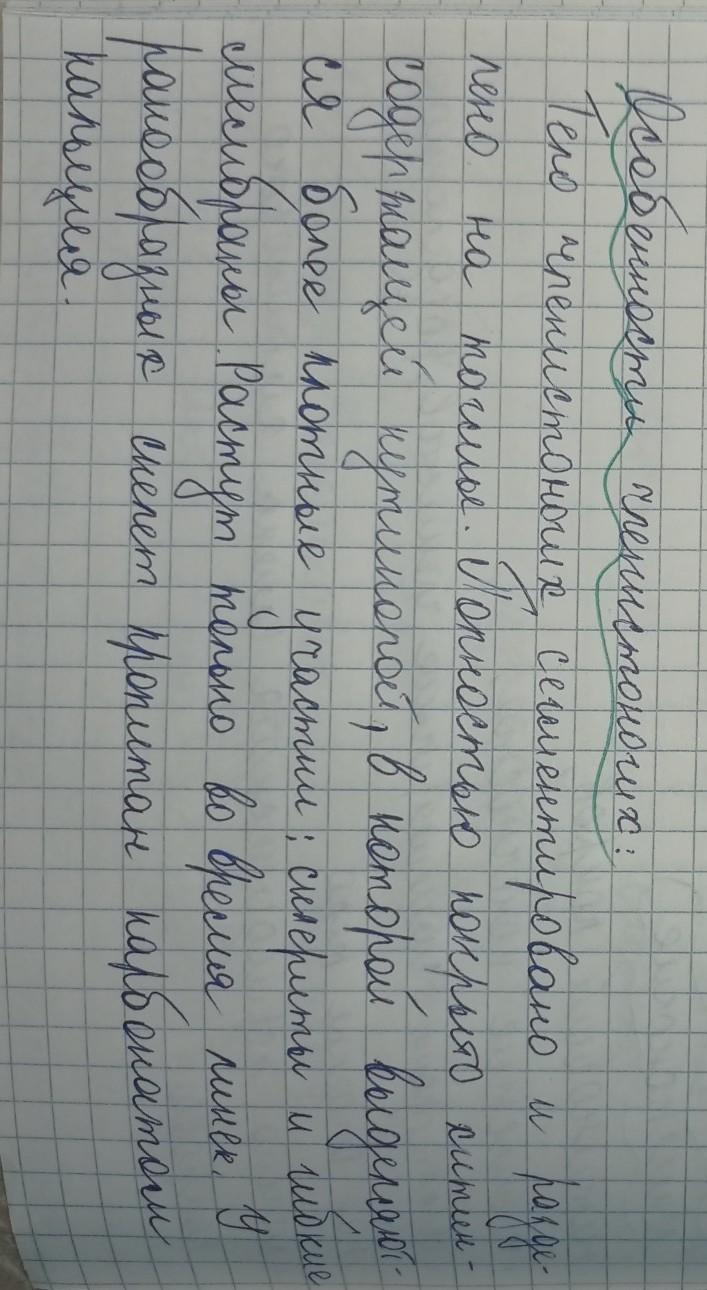 Особенности членистоногих:
Тело членистоногих сегментировано и разде-
лено на тагмы. Полностью покрыто хитин-
содержащей кутикулой, в которой выделяют-
ся более плотные участки: склериты и гибкие
мембраны. Растут только во время линек. У
ракообразных скелет пропитан карбонатом
кальция.